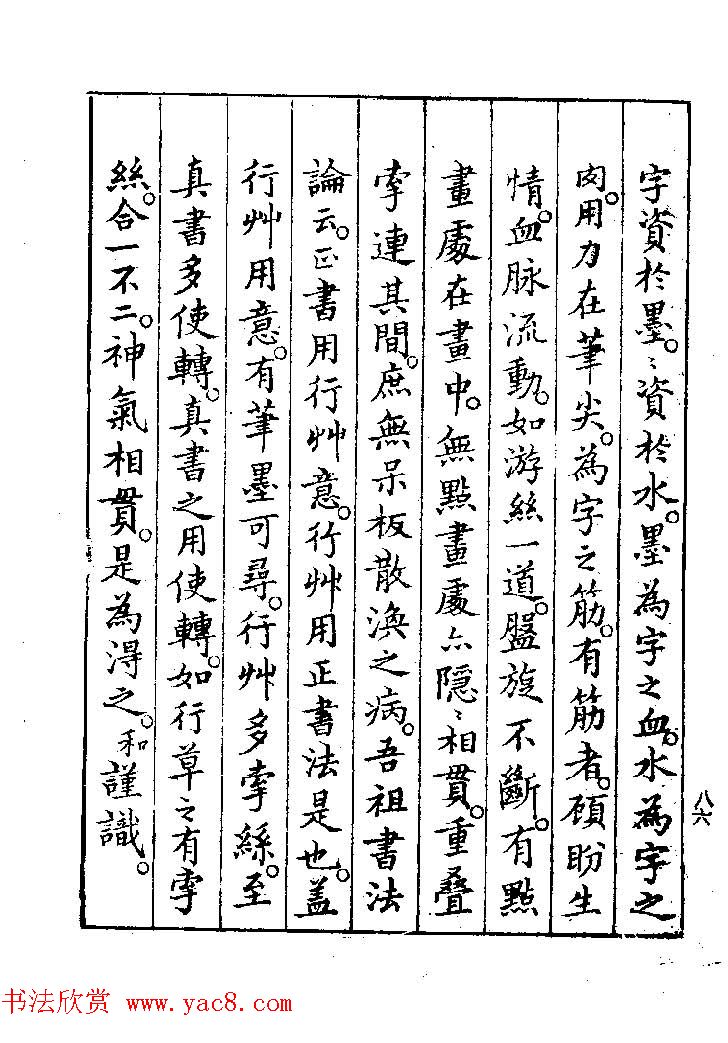 字資於墨。〻資於水。墨為字之血。水為字之
肉。用力在筆尖。為字之筋。有筋者。顧盼生
情。血脉流動。如游絲一道。盤旋不斷。有點
畫處在畫中。無點畫處亦隱〻相貫。重叠
牽連其間。庶無呆板散渙之病。吾祖書法
論云。正書用行艸意。行艸用正書法是也。盖
行艸用意。有筆墨可尋。行艸多牽絲。至
真書多使轉。真書之用使轉。如行草之有牽
絲。合一不二。神氣相貫。是為淂之。和謹識。
八六
书法欣赏 www.yac8.com